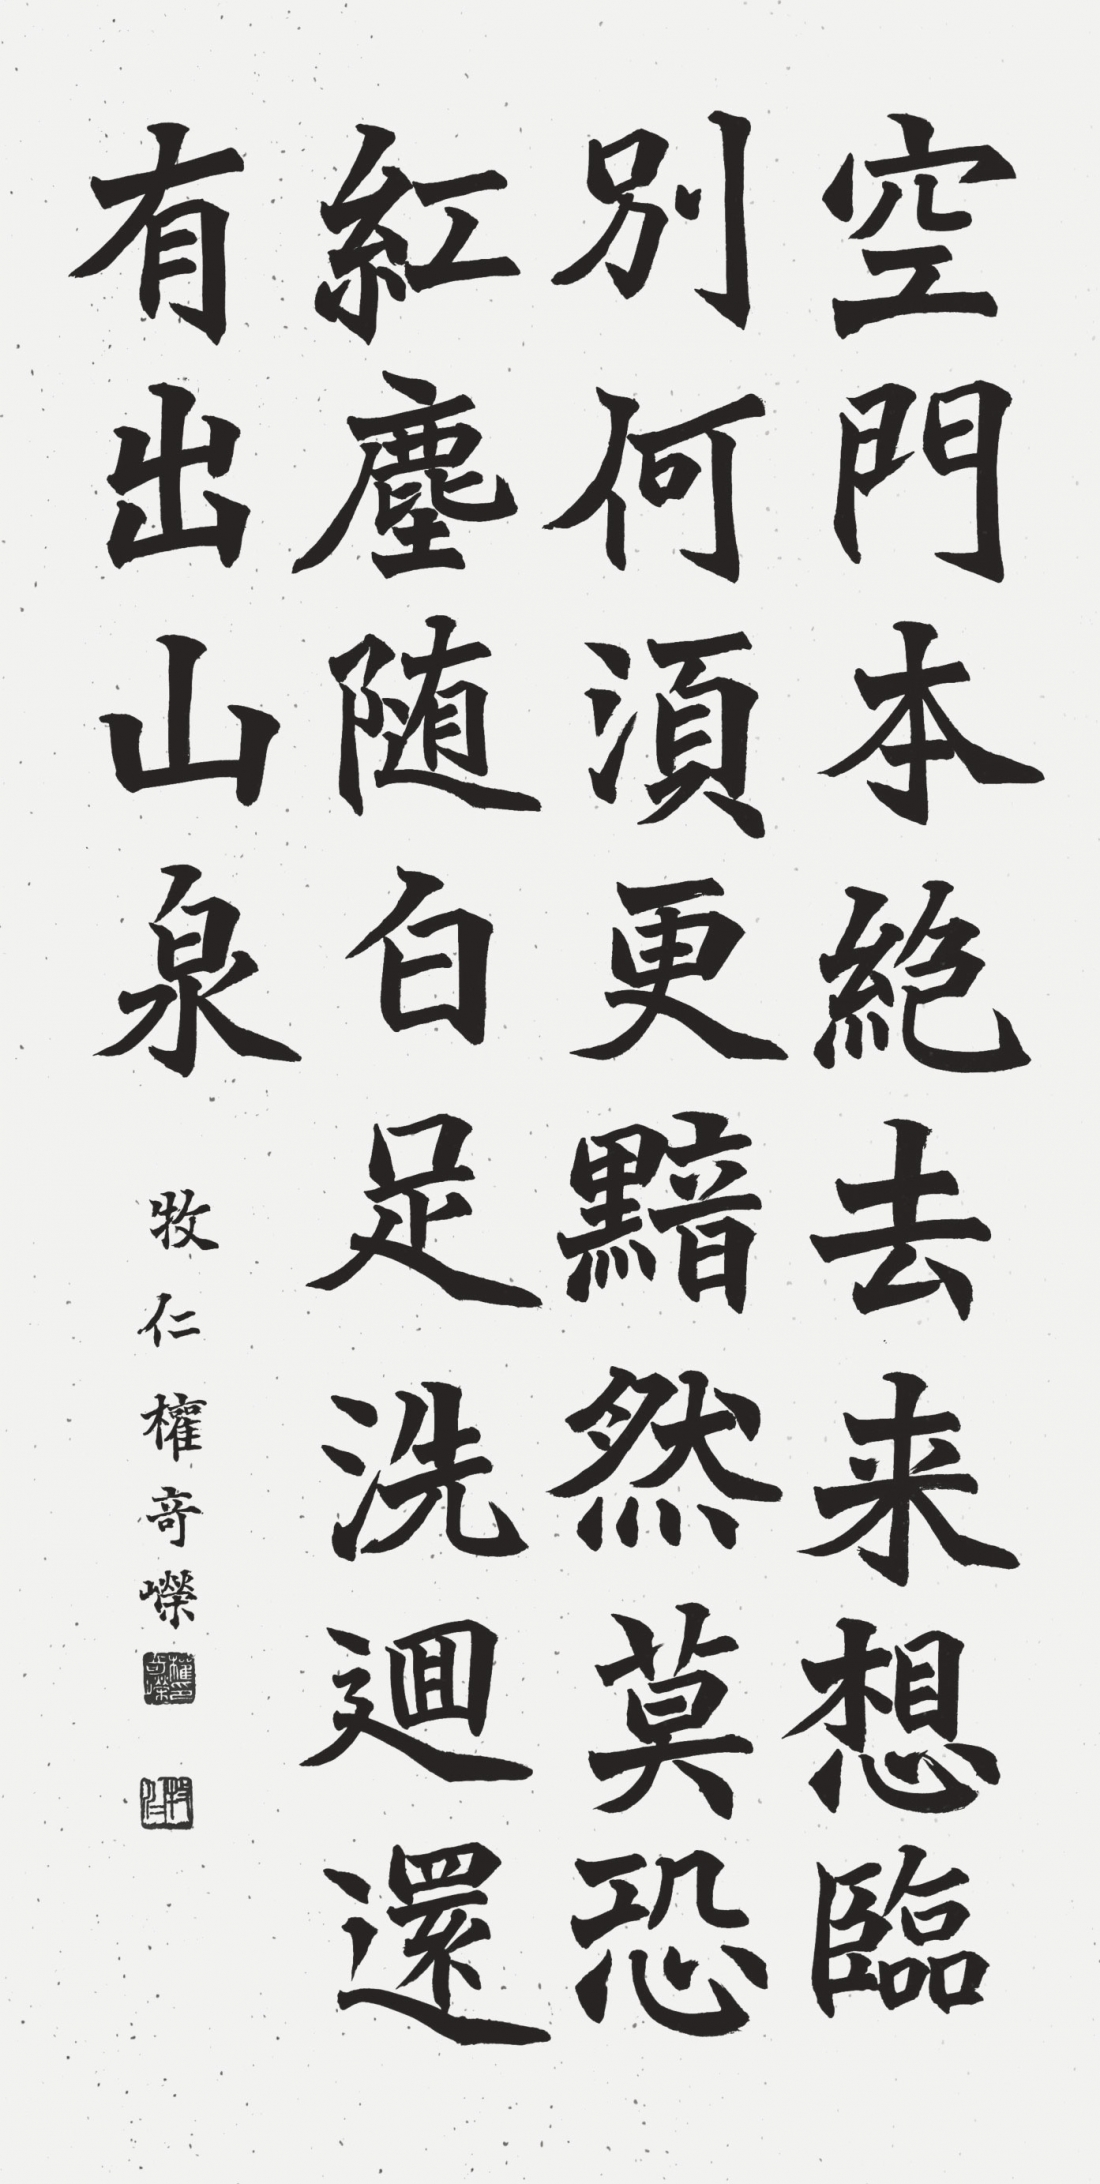 空門本絶去来想臨
別何須更黯然莫恐
紅塵随白足洗迴還
有出山泉
牧仁權奇嶸